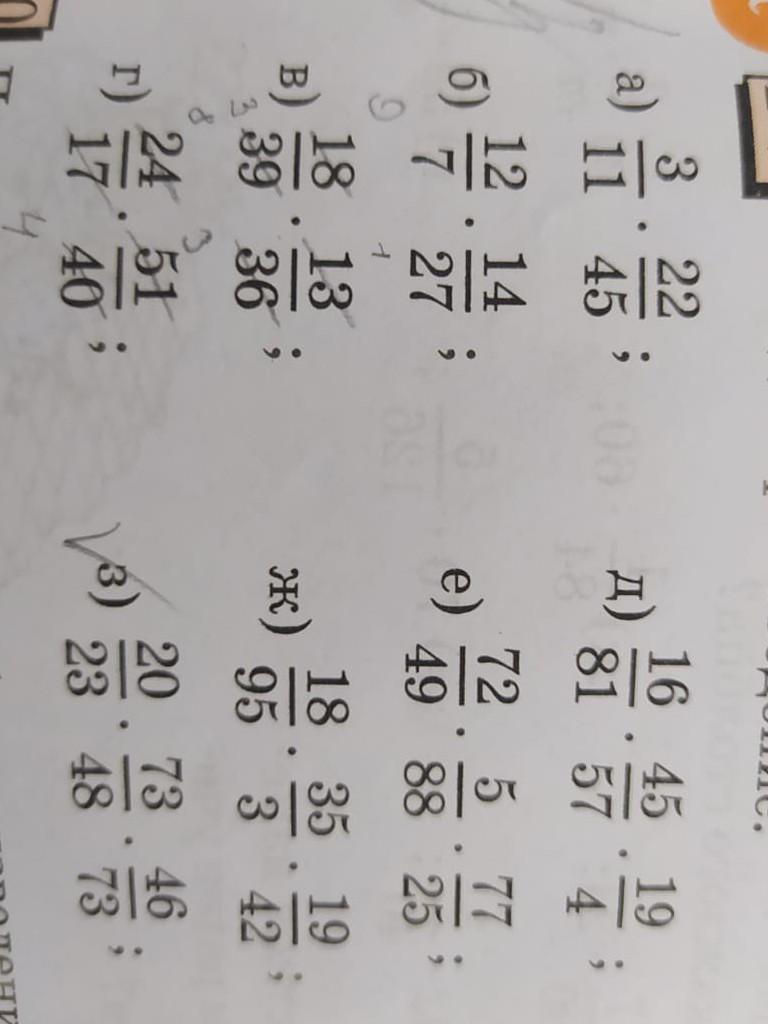 едение.
а) 3/11 · 22/45;
б) 12/7 · 14/27;
в) 18/39 · 13/36;
г) 24/17 · 51/40;
д) 16/81 · 45/57 · 19/4;
е) 72/49 · 5/88 · 77/25;
ж) 18/95 · 35/3 · 19/42;
з) 20/23 · 73/48 · 46/73;
9
1
3
8
3
4